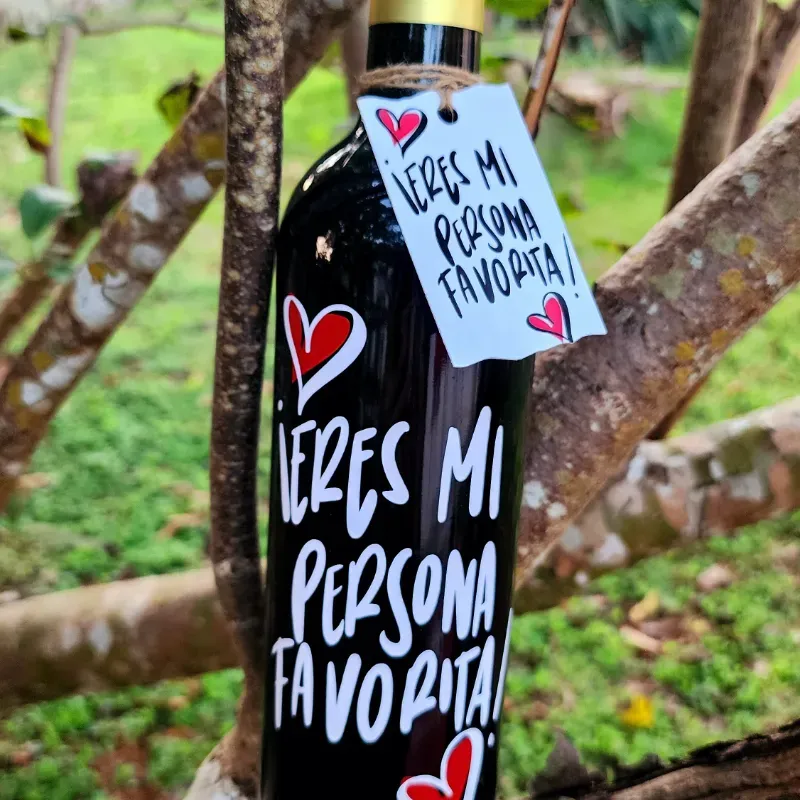 ¡ERES MI
PERSONA
FAVORITA!
¡ERES MI
PERSONA
FAVORITA!